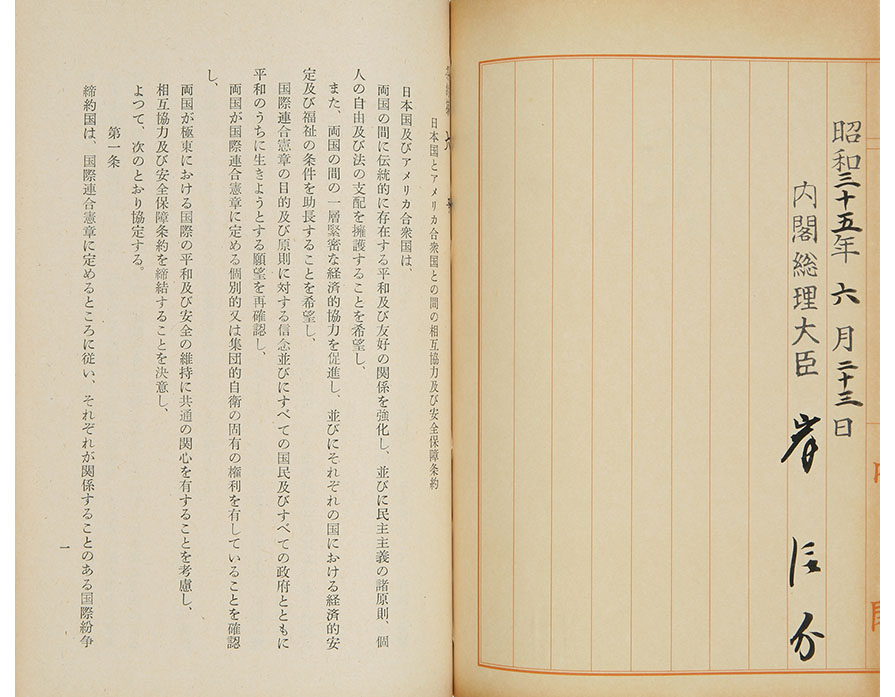 昭和三十五年六月二十三日
内閣総理大臣 岸信介
日本国とアメリカ合衆国との間の相互協力及び安全保障条約
日本国及びアメリカ合衆国は、
両国の間に伝統的に存在する平和及び友好の関係を強化し、並びに民主主義の諸原則、個
人の自由及び法の支配を擁護することを希望し、
また、両国の間の一層緊密な経済的協力を促進し、並びにそれぞれの国における経済的安
定及び福祉の条件を助長することを希望し、
国際連合憲章の目的及び原則に対する信念並びにすべての国民及びすべての政府とともに
平和のうちに生きようとする願望を再確認し、
両国が国際連合憲章に定める個別的又は集団的自衛の固有の権利を有していることを確認
し、
両国が極東における国際の平和及び安全の維持に共通の関心を有することを考慮し、
相互協力及び安全保障条約を締結することを決意し、
よつて、次のとおり協定する。
第一条
締約国は、国際連合憲章に定めるところに従い、それぞれが関係することのある国際紛争
一